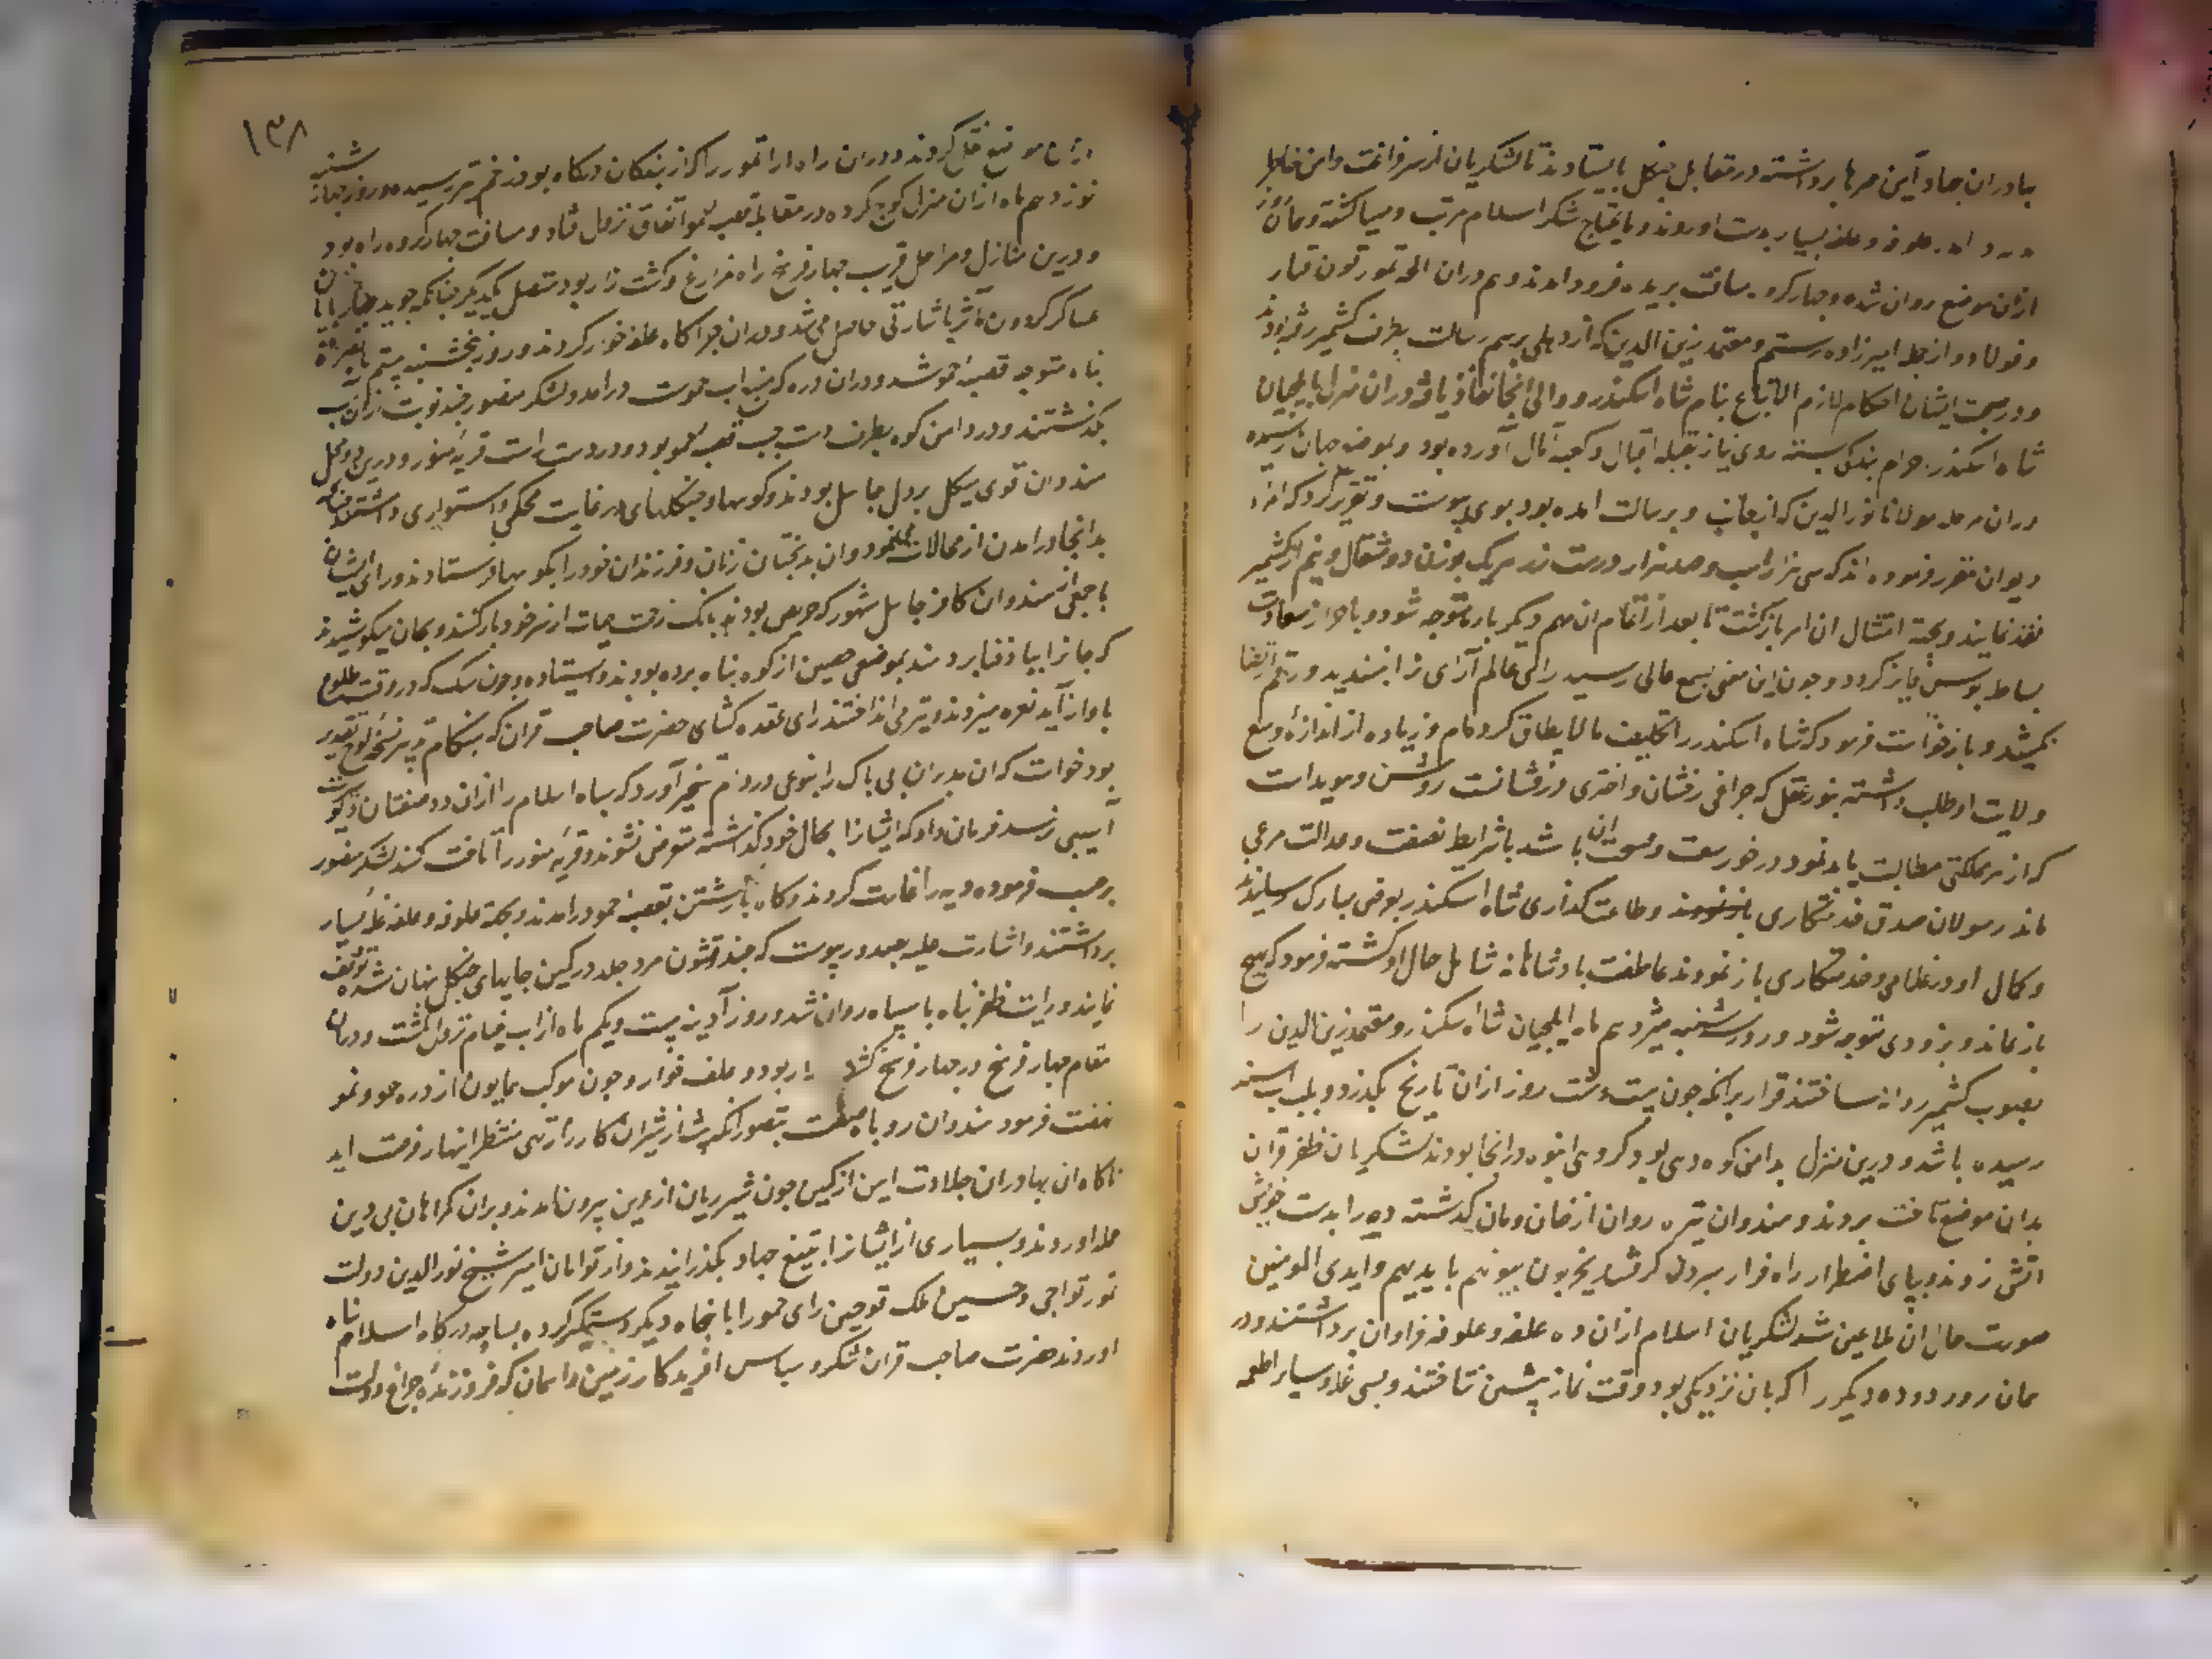 بهادران جهاد آیین حربها برداشته در مقابل جنکل بایستادند تا لشکریان از سر فراغت و امن خاطر
در امد علوفه و علف بسیار بدست اوردند و مایحتاج لشکر اسلام مرتب و مهیا کشته و همان روز
ازان موضع روان شده و چهار کروه مسافت بریده فرود امدند و هم دران الجه تمور تون قتار
و فولاد و از جمله امیرزاده رستم و معتمد زین الدین که از دهلی برسم رسالت بطرف کشمیر رفته بودند
و در صحبت ایشان احکام لازم الاتباع بنام شاه اسکندر والی انجا نفاذ یافته دران منزل با ایلچیان
شاه اسکندر احرام بندکی بسته روی نیاز بقبله اقبال و کعبه آمال آورده بود و بموضع جبان رسیده
دران مرحله مولانا نورالدین که از جانب او برسالت امده بود بوی پیوست و تقریر کرد که امراء
دیوان مقرر فرموده اند که سی هزار اسب و صد هزار درست زر هر یک بوزن دو مثقال و نیم از کشمیر
نقد نمایند و بجهة امتثال ان امر بازکشت تا بعد از اتمام ان مهم دیکر باره متوجه شود و باحراز سعادت
بساط بوسی فایز کردد و چون این معنی بسمع عالی رسید رای عالم آرای انرا نپسندید و رقم ارتضا
نکشید و بازخواست فرمود که شاه اسکندر را تکلیف مالایطاق کرده‌ام و زیاده از اندازه وسع
ولایت او طلب داشته بنور عقل که چراغی رخشان و اختری درفشانست روشن و هویداست
که از هر مملکتی مطالبت باید نمود در خور سعت و فسحت ان باشد تا شرایط نصفت و عدالت مرعی
ماند رسولان صدق خدمتکاری و طاعت کذاری شاه اسکندر بعرض مبارک رسانیدند
و کمال او در غلامی و خدمتکاری باز نمودند عاطفت پادشاهانه شامل حال او کشته فرمود که هیچ
باز نماند و بزودی متوجه شود و روز شنبه هژدهم ماه ایلچیان شاه اسکندر و معتمد زین الدین را
بصوب کشمیر روانه ساختند قرار برانکه چون بیست و هشت روز ازان تاریخ بکذرد و بلب اب سند
رسیده باشد و درین منزل بدامن کوه دهی بود کروهی انبوه درانجا بودند لشکریان ظفر قران
بدان موضع تاخت بردند و هندوان تیره روان از خان و مان کذشته ده را بدست خویش
اتش زدند و بپای اضطرار راه فرار سپردن کرفتند یخربون بیوتهم بایدیهم و ایدی المومنین
صورت حال ان ملاعین شد لشکریان اسلام ازان ده علف و علوفه فراوان برداشتند و در
همان روز دو ده دیکر را که بان نزدیکی بود وقت نماز پیشین تاختند و بسی غله و بسیار اطعمه
۱۳۸
ازان موضع نقل کردند و دران راه اراتمور را که از بندکان درکاه بود زخم تیر رسیده و روز چهارشنبه
نوزدهم ماه ازان منزل کوچ کرده در مقابل قصبه جمو اتفاق نزول افتاد و مسافت چهار کروه راه بود
و درین منازل و مراحل قریب چهار فرسخ راه مزارع و کشت زار بود متصل یکدیکر چنانکه جوید
عساکر کردون مآثر باشارتی حاصل می شد و دران چراکاه علف خوار کردند و روز پنجشنبه بیستم
پناه متوجه قصبه جمو شد و دران دره که منبع اب جموست درامد و لشکر منصور چند نوبت ازان آب
بکذشتند و در دامن کوه بطرف دست چپ قصبه جمو بود و در دست راست قریه منو و درین دو محل
هندوان قوی هیکل پردل جاهل بودند و کوهها و جنکلهای در غایت محکمی و استواری داشتند چنانکه
بدانجا درامدن از محالات مینمود و ان بدبختان زنان و فرزندان خود را بکوهها فرستادند و رای ایشان
با جمعی هندوان کافر جاهل شهور که حریص بودند بانک رخت حیات از سر خود بار کنند و بجان میکوشیدند
که جانرا بباد فنا بردهند بموضعی حصین از کوه پناه برده بودند و ایستاده و چون سک که در وقت طلوع
باواز آید نعره میزدند و تیر می انداختند رای عقده کشای حضرت صاحب قران که بهنکام تدبیر نسخه لوح تقدیر
بود خواست که ان مدبران بی باک را بنوعی در دام تسخیر آورد که سپاه اسلام را ازان دد صفتان دیو سیرت
آسیبی نرسد فرمان داد که ایشانرا بحال خود کذاشته متعرض نشوند و قریه منو را تاخت کنند لشکر منصور
برحسب فرموده دیه را غارت کردند و کاه بازکشتن بقصبه جمو درامدند و بجهة علوفه و علف غله بسیار
برداشتند و اشارت علیه بصدور پیوست که چند قشون مرد جلد در کمین جایهای جنکل پنهان شده توقف
نمایند و رایت ظفر پناه با سپاه روان شد و روز آدینه بیست و یکم ماه از اب خیام نزول کشت و دران
مقام چهار فرسخ در چهار فرسخ کشتزار بود و علف خوار و چون موکب همایون از دره جمو و منو
نهضت فرمود هندوان روباه صفت بتصور انکه بیشه از شیران کارزار تهی منتظر انتهاز فرصت اید
ناکاه ان بهادران جلادت ایین از کمین چون شیر ژیان از عرین بیرون تاختند و بران کمراهان بی دین
حمله اوردند و بسیاری از ایشانرا بتیغ جهاد بکذرانیدند و از توامان امیر شیخ نورالدین دولت
تمور تواجی و حسین ملک قوجین رای جمو را با پنجاه دیکر دستکیر کرده بسایه درکاه اسلام پناه
اوردند حضرت صاحب قران شکر و سپاس افریدکار زمین و اسمان که فروزنده چراغ دولت